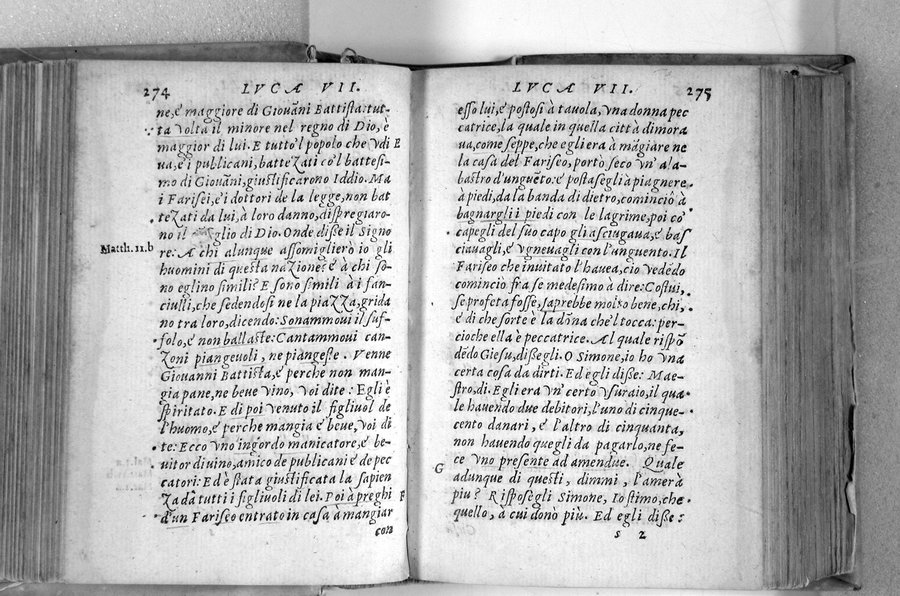 274 LVCÆ VII.
ne, è maggiore di Giouãni Battista: tut-
ta volta il minore nel regno di Dio, è
maggior di lui. E tutto'l popolo che vdi E
ua, e i publicani, batteZati co'l battesi-
mo di Giouãni, giustificarono Iddio. Ma
i Farisei, e'i dottori de la legge, non bat
teZati da lui, à loro danno, dispregiaro-
no il glio di Dio. Onde disse il Signo
Matth. 11. b re: A chi alunque assomiglierò io gli
huomini di questa naZione? è à chi so-
no eglino simili? E sono simili à i fan-
ciulli, che sedendosi ne la piaZZa, grida
no tra loro, dicendo: Sonammoui il suf-
folo, e non ballaste: Cantammoui can-
Zoni piangeuoli, ne piangeste. Venne
Giouanni Battista, e perche non man-
gia pane, ne beue vino, voi dite: Egli è
spiritato. E di poi venuto il figliuol de
l'huomo, e perche mangia e beue, voi di
te: Ecco vno ingordo manicatore, e be-
uitor di uino, amico de publicani e de pec
catori: Ed è stata giustificata la sapien
Za da tutti i figliuoli di lei. Poi à preghi F
d'un Fariseo entrato in casa à mangiar
con
LVCÆ VII. 275
esso lui, e postosi à tauola, vna donna pec
catrice, la quale in quella città dimora
ua, come seppe, che egli era à mãgiare ne
la casa del Fariseo, portò seco vn' ala-
bastro d'unguẽto: e postasegli à piagnere
à piedi, da la banda di dietro, cominciò à
bagnargli i piedi con le lagrime, poi co'
capegli del suo capo gli asciugaua, e bas
ciauagli, e vgneuagli con l'unguento. Il
Fariseo che inuitato l'hauea, cio vedẽdo
comincio fra se medesimo à dire: Costui,
se profeta fosse, saprebbe molto bene, chi,
e di che sorte è la dõna che'l tocca: per-
cioche ella è peccatrice. Al quale rispõ
dẽdo Giesu, dissegli. O Simone, io ho vna
certa cosa da dirti. Ed egli disse: Mae-
stro, di. Egli era vn' certo vsuraio, il qua-
le hauendo due debitori, l'uno di cinque-
cento danari, e l'altro di cinquanta,
non hauendo quegli da pagarlo, ne fe-
G ce vno presente ad amendue. Quale
adunque di questi, dimmi, l'amerà
piu? Risposegli Simone, Io stimo, che
quello, à cui donò più. Ed egli disse:
s 2